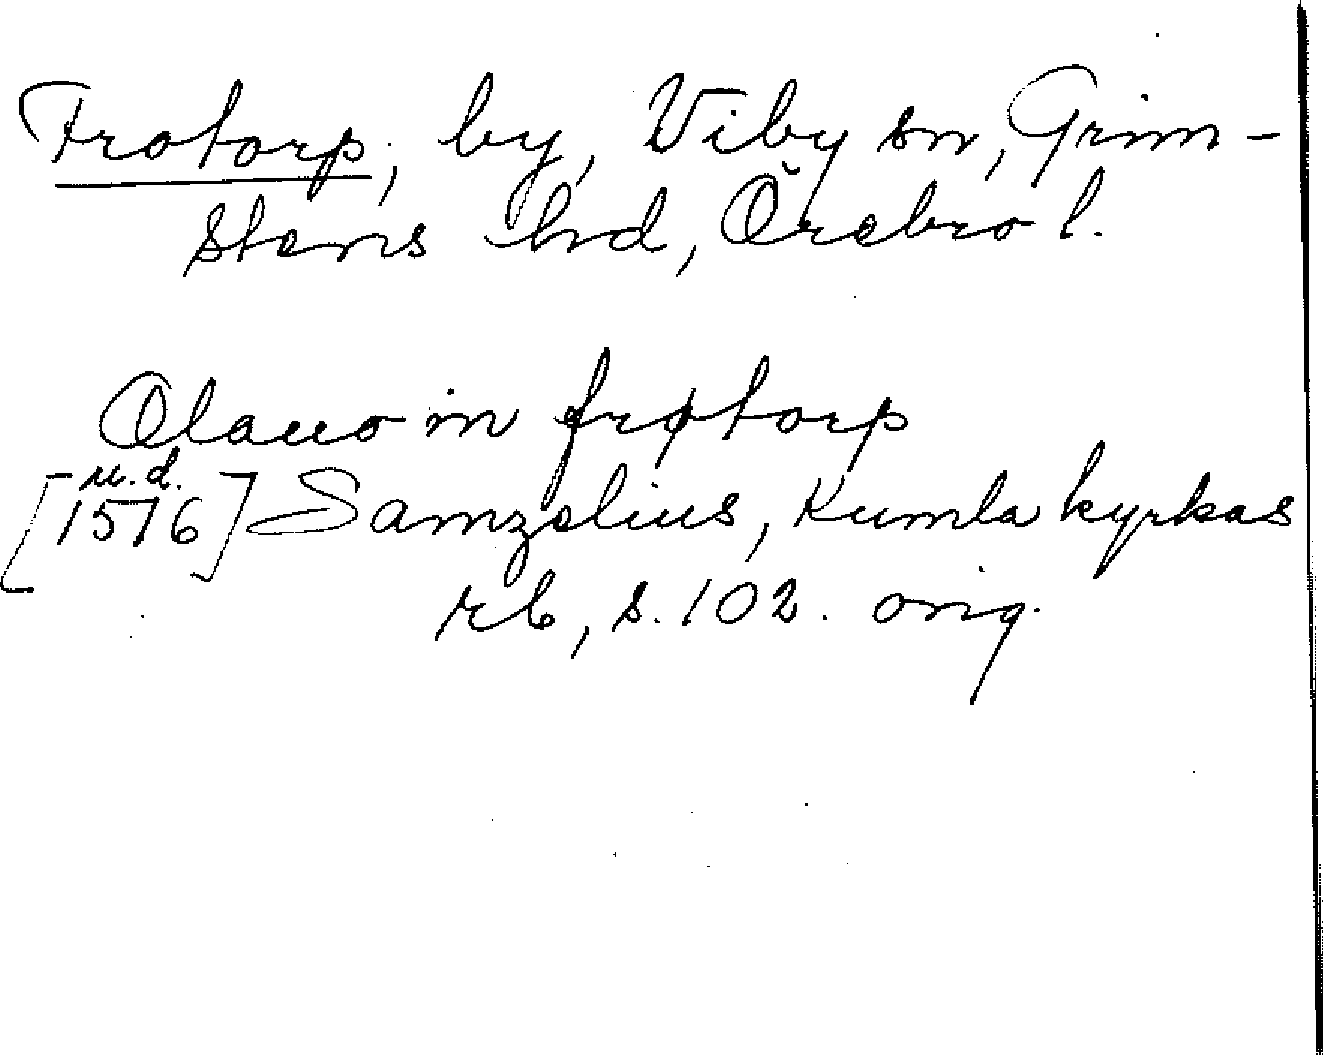 Frotorp, by, Viby sn, Grim-
stens hd, Örebro l.
Olauo in frøtorp
u.d.
[1576] Samzelius, Kumla kyrkas
rb, s. 102. orig.